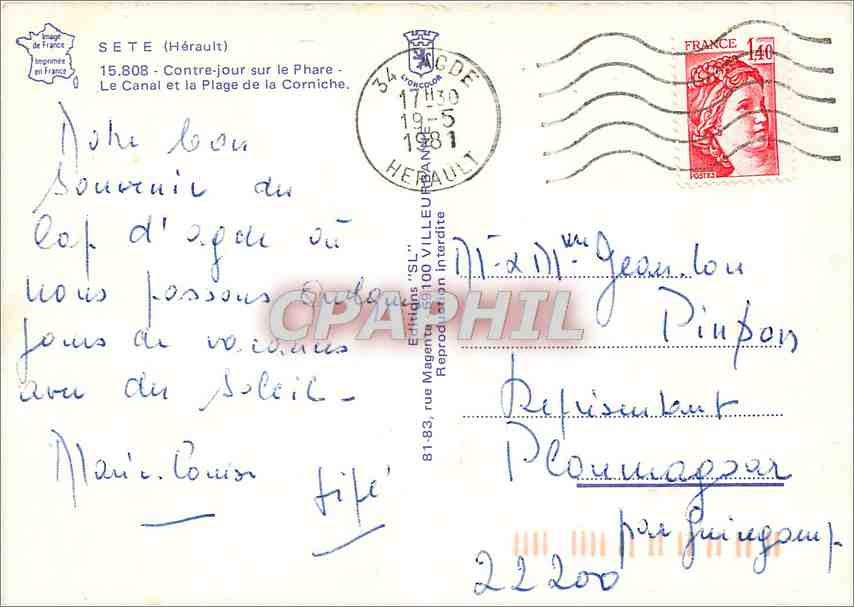 Image
de France
Imprimée
en France
SETE (Hérault)
15.808 - Contre-jour sur le Phare -
Le Canal et la Plage de la Corniche.
LYONCOLOR
34 AGDE
17H30
19-5
1981
HERAULT
FRANCE
1,40
POSTES
Notre bon
Souvenir du
Cap d'agde où
nous passons quelques
jours de vacances
avec du Soleil -
Marie-Louise
fifi
Editions "SL"
81-83, rue Magenta 69100 VILLEURBANNE
Reproduction interdite
CPAPHIL
Mr & Mme Jean-Lou
Pinson
Représentant
Ploumagoar
par Guingamp
22200